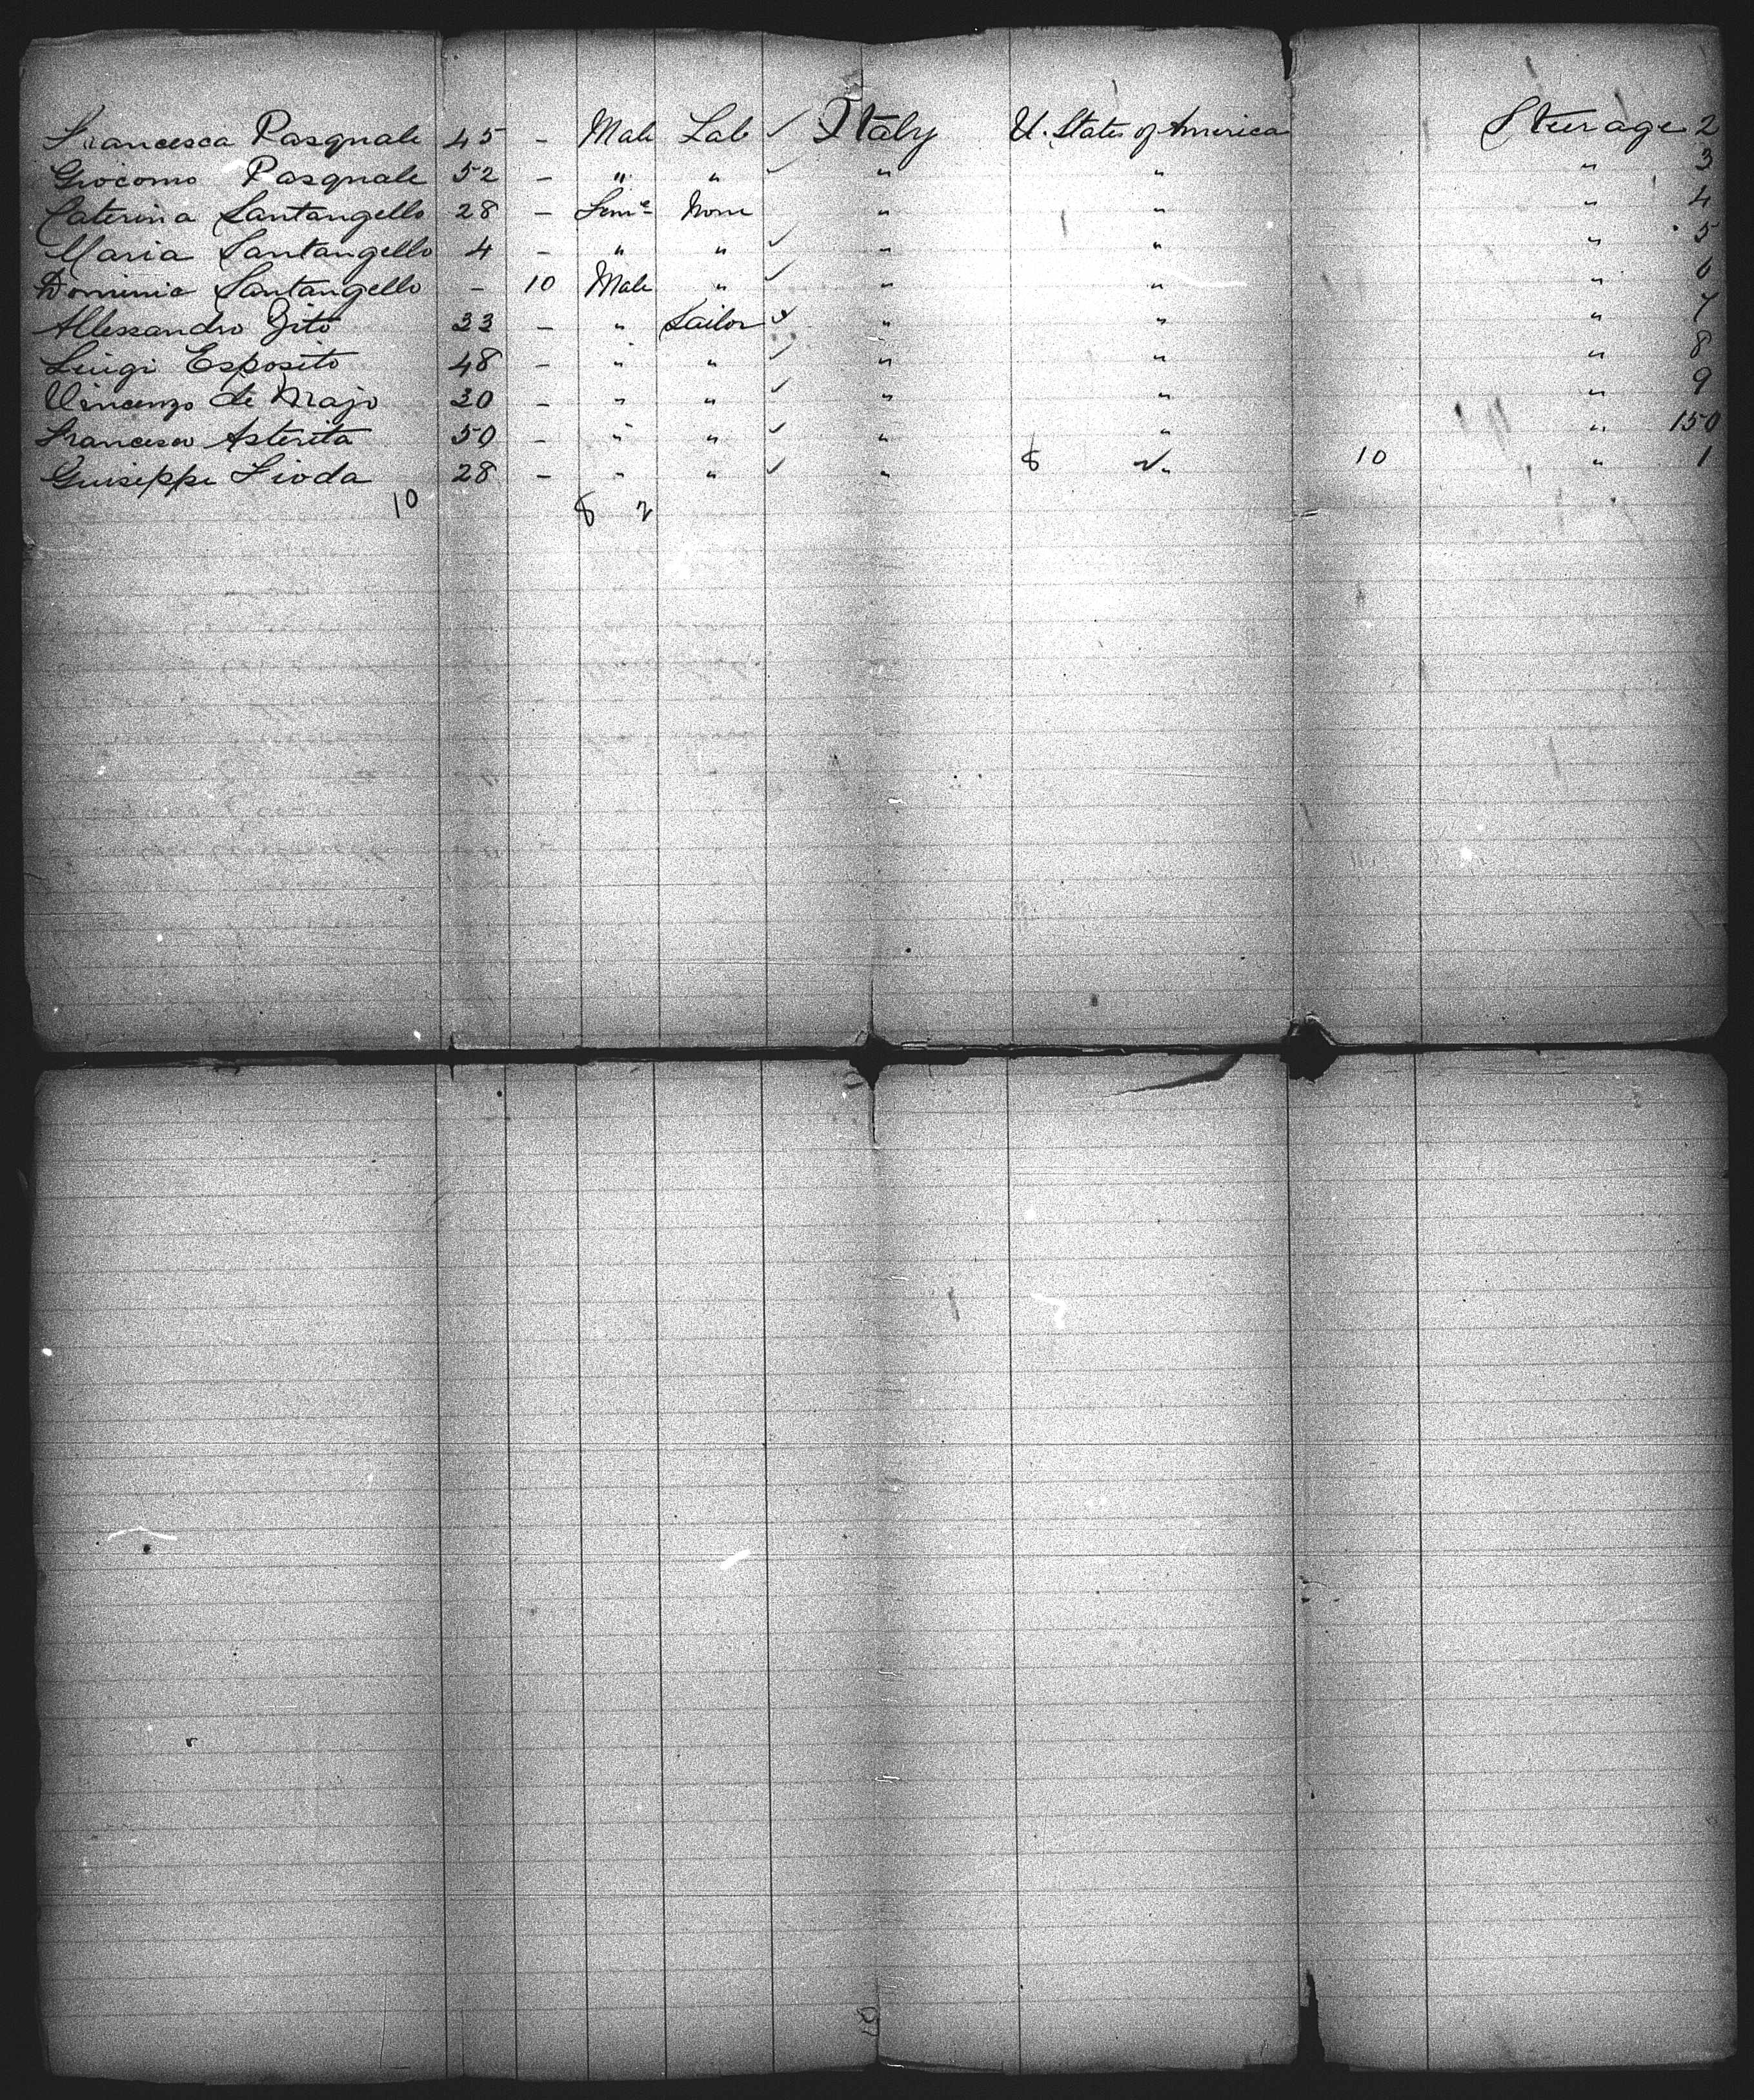 Francesca Pasquale 45 - Male Lab ✓ Italy U. States of America Steerage 2
Giocomo Pasquale 52 - " " ✓ " " " 3
Caterina Santangello 28 - Feme None " " " 4
Maria Santangello 4 - " " ✓ " " " 5
Dominic Santangello - 10 Male " ✓ " " " 6
Allessandro Zito 33 - " Sailor ✓ " " " 7
Luigi Esposito 48 - " " ✓ " " " 8
Vincenzo de Majo 30 - " " ✓ " " " 9
Francesco Asterita 50 - " " ✓ " " " 150
Guiseppe Fioda 28 - " " ✓ " 8 ✓ " 10 " 1
10 8 2